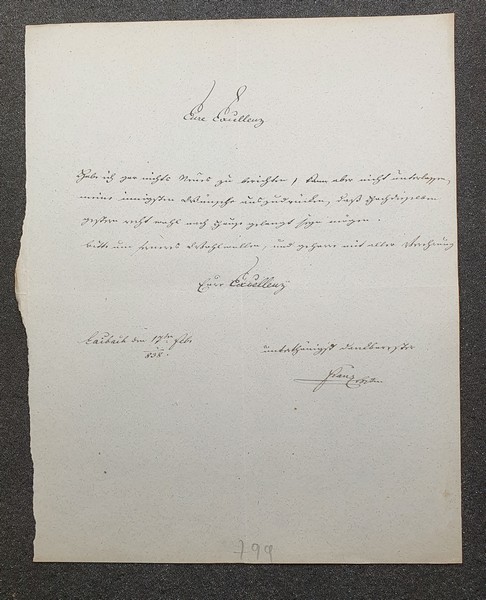 Eure Excellenz
Habe ich gar nichts Neues zu berichten, kann aber nicht unterlassen,
meine innigsten Wünsche auszudrücken, daß Hochdieselben
gestern recht wohl nach Hause gelangt seyn mögen.
Bitte um ferneres Wohlwollen, und geharre mit aller Verehrung
Euer Excellenz
Laibach den 17ten Febr
838
unterthänigst dankbarster
Franz
799